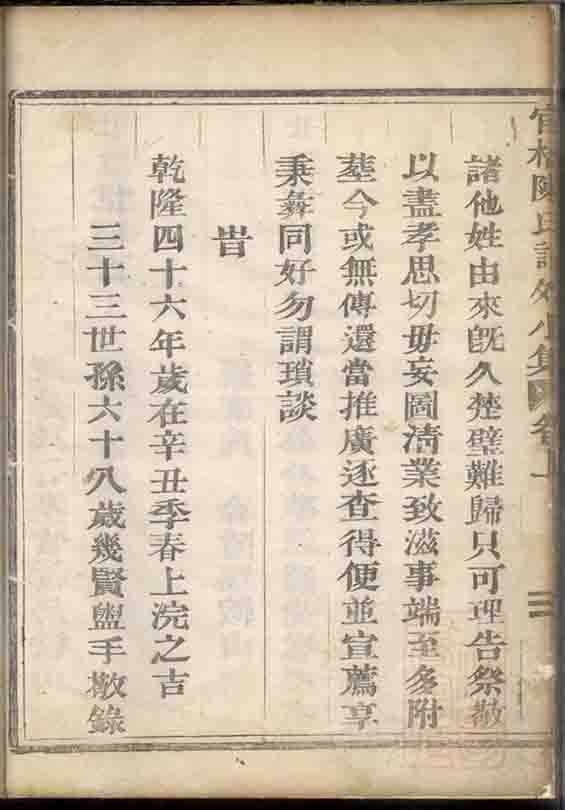 陳氏譜外小集 卷上
諸他姓由來旣久楚璧難歸只可理告祭敬
以盡孝思切毋妄圖淸業致滋事端至多附
塟今或無傳還當推廣逐查得便並宣薦享
秉彜同好勿謂瑣談
旹
乾隆四十六年歲在辛丑季春上浣之吉
三十三世孫六十八歲幾賢盥手敬錄